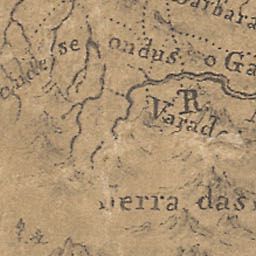 arbara
onde se ondus. o Ga
R
Varad
Serra das